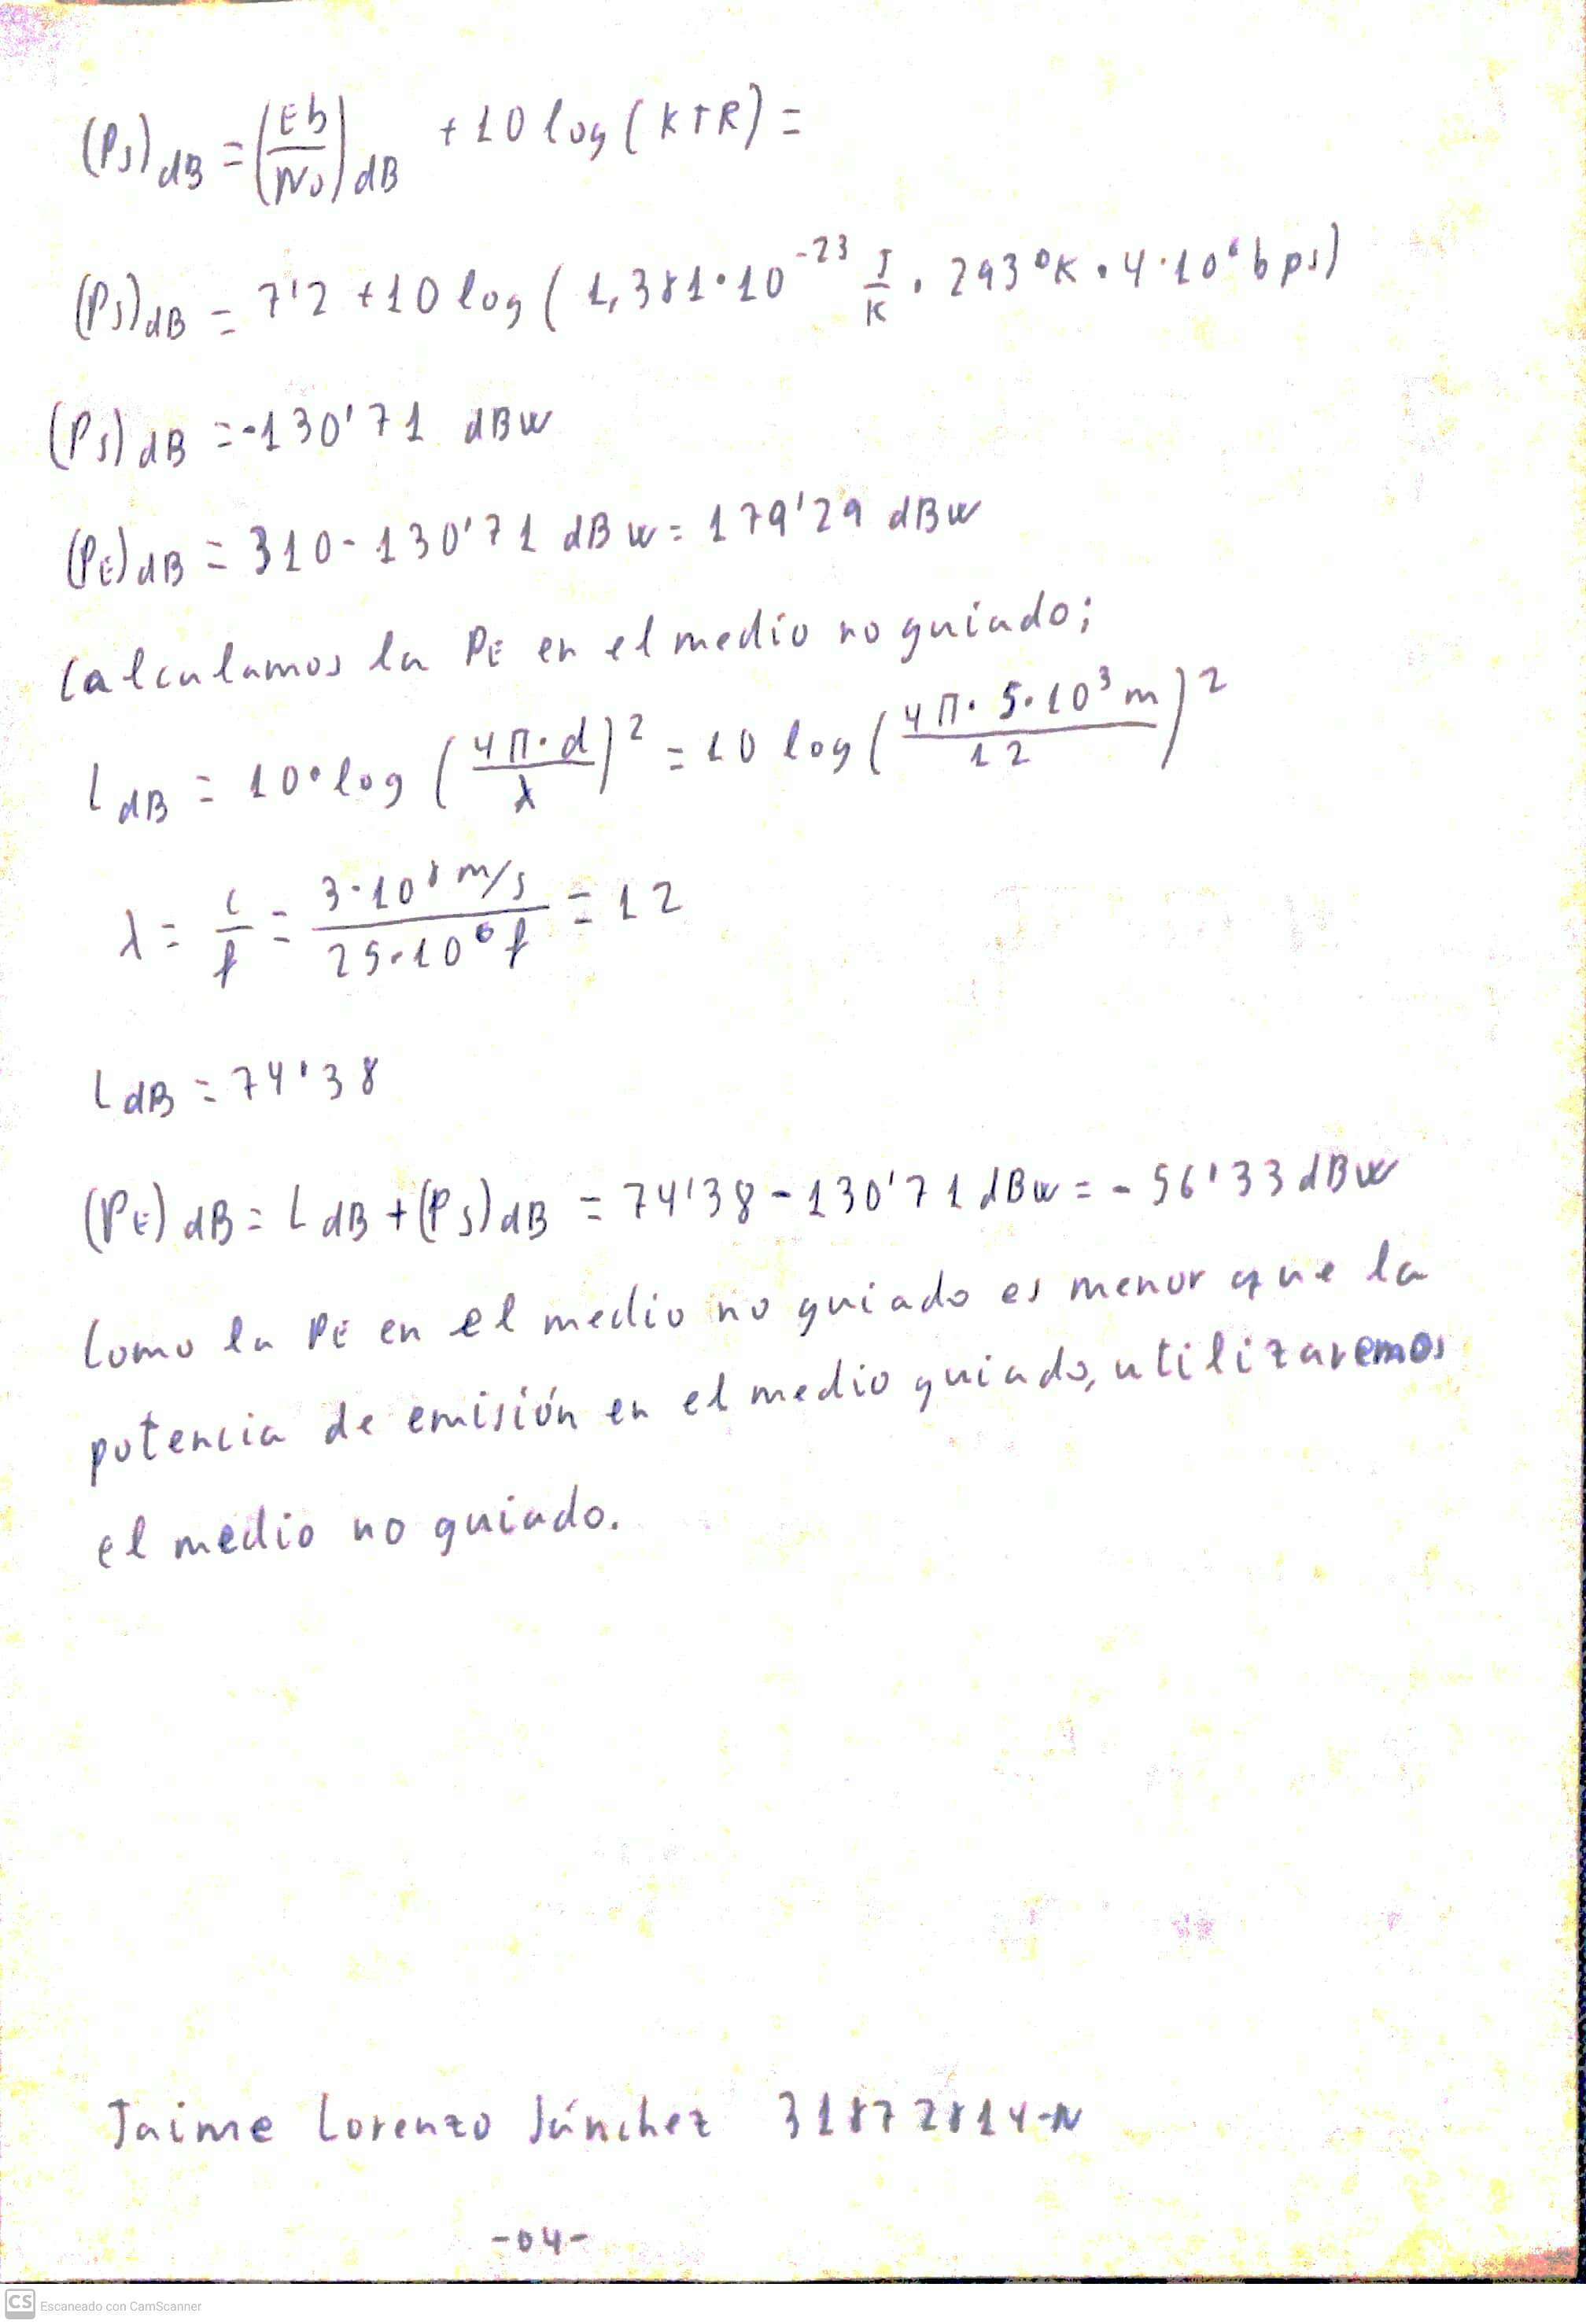 (Ps)dB = (Eb/No)dB + 10 log (KTR) =
(Ps)dB = 7'2 + 10 log (1,381·10^-23 J/K · 293 ºK · 4·10^6 bps)
(Ps)dB = -130'71 dBw
(PE)dB = 310 - 130'71 dBw = 179'29 dBw
Calculamos la PE en el medio no guiado;
LdB = 10·log (4π·d/λ)^2 = 10 log (4π·5·10^3 m/12)^2
λ = c/f = 3·10^8 m/s / 25·10^6 f = 12
LdB = 74'38
(PE)dB = LdB + (Ps)dB = 74'38 - 130'71 dBw = -56'33 dBw
Como la PE en el medio no guiado es menor que la
potencia de emisión en el medio guiado, utilizaremos
el medio no guiado.
Jaime Lorenzo Sánchez 31872814-N
-04-
CS Escaneado con CamScanner